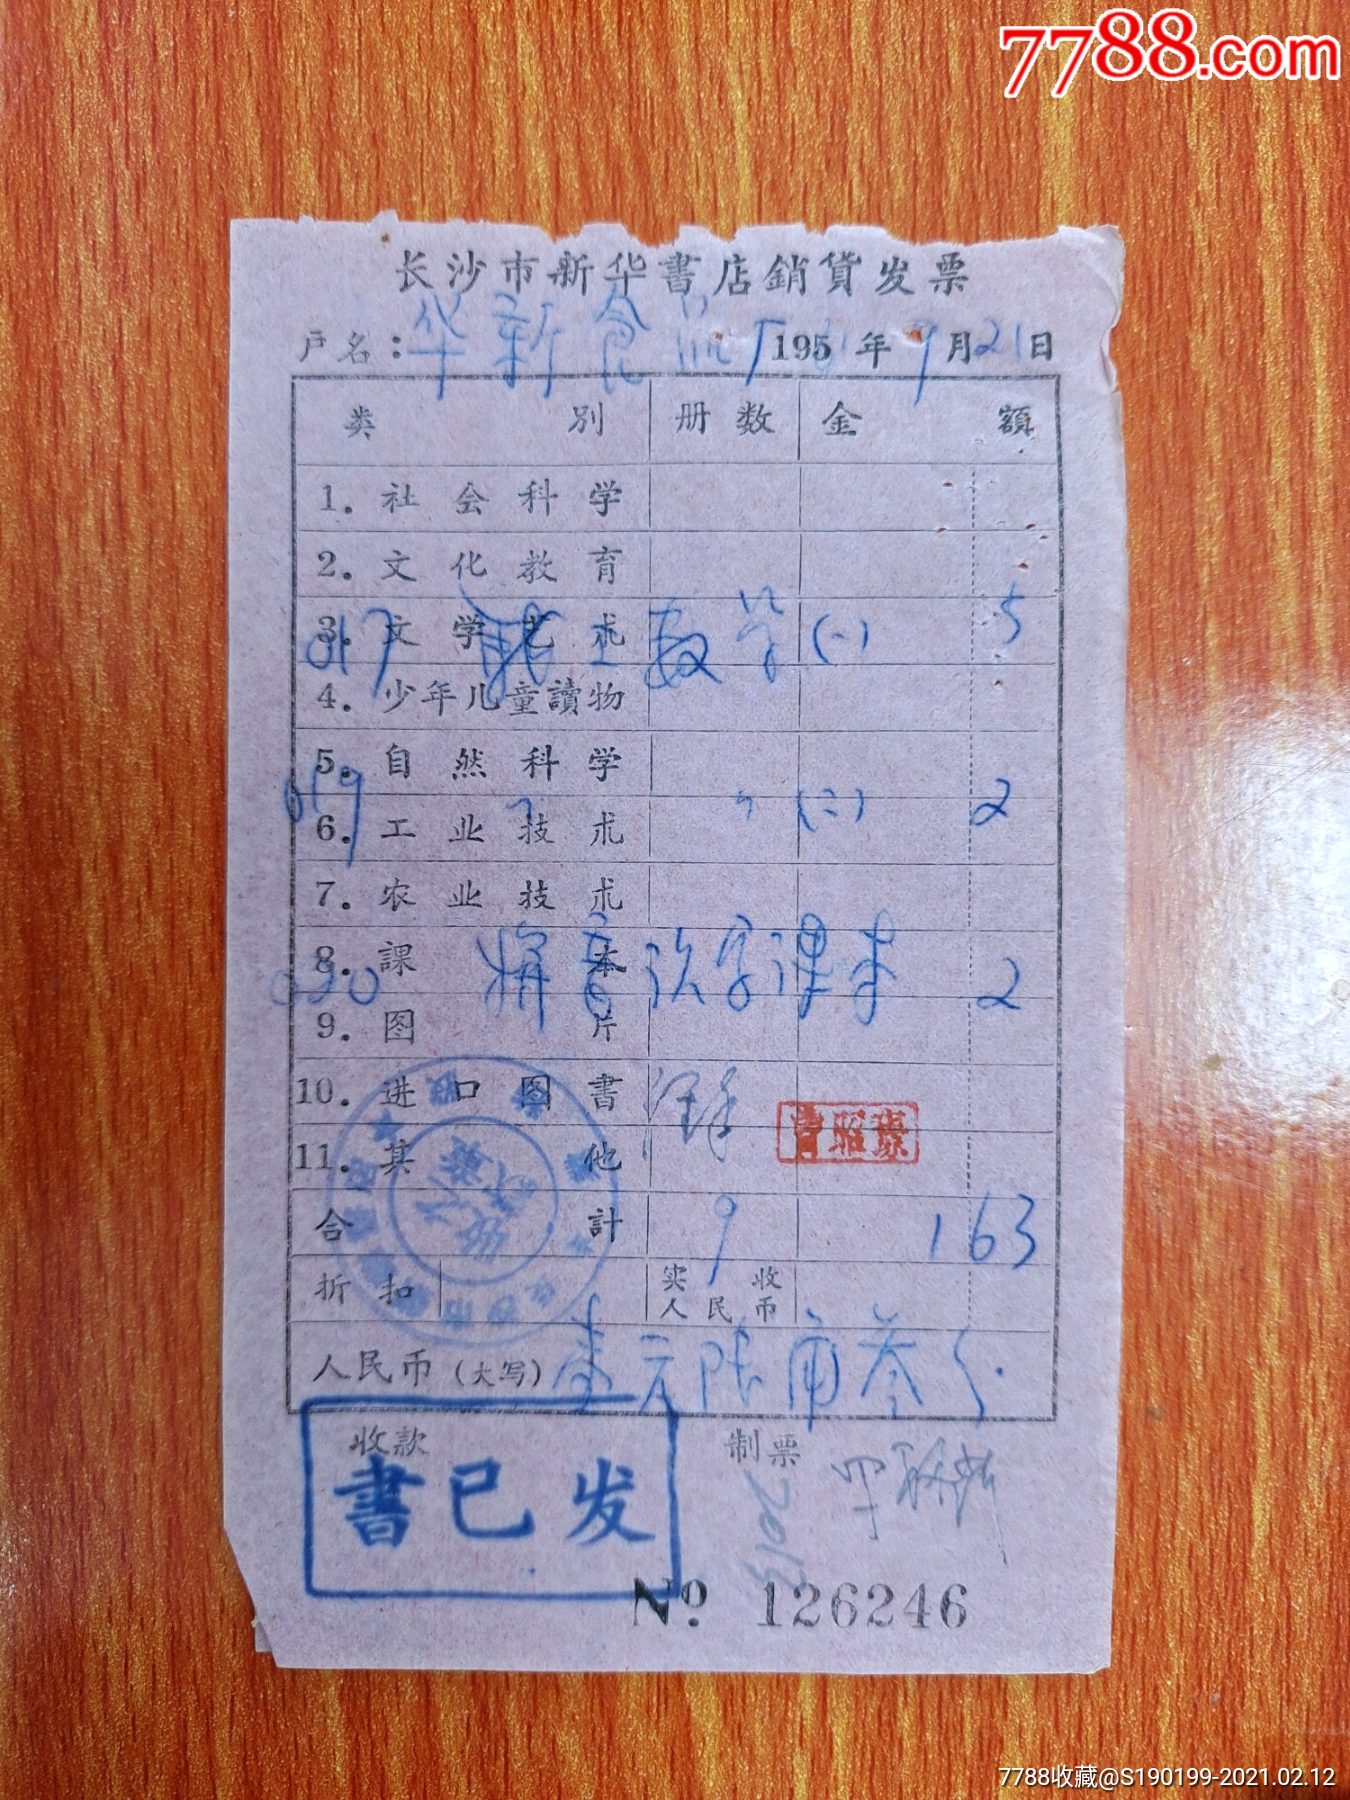 7788.com
长沙市新华書店銷貨发票
戶名：华新食品厂 195 年9月21日
类別 册数 金額
1. 社会科学
2. 文化教育
3. 文学艺术
017 职工数学(一) 5
4. 少年儿童讀物
5. 自然科学
019 〃 〃 (二) 2
6. 工业技术
7. 农业技术
8. 課本
030 拼音识字课本 2
9. 图片
10. 进口图書
11. 其他
曾昭璩
合計 9 1 63
折扣 实收人民币
人民币(大写) 壱元陆角叁分
收款 制票
書已发
№ 126246
7788收藏@S190199-2021.02.12